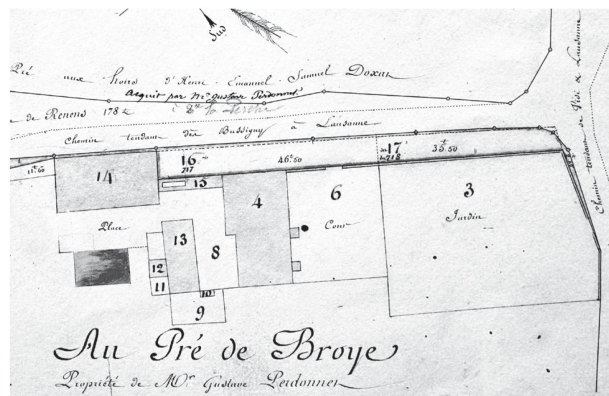 Sud
Pré aux hoirs d'Henri-Emanuel-Samuel Doxat
acquit par Mr Gustave Perdonnet
de Renens 178
Chemin tendam de Bussigny à Lausanne
Chemin tendam de Vidi de Lausanne
16 717 46.50
17 718 35.50
11.60
14
15
4
6
3
Place
13
8
Cour
Jardin
12
11
10
9
Au Pré de Broye
Propriété de Mr Gustave Perdonnet